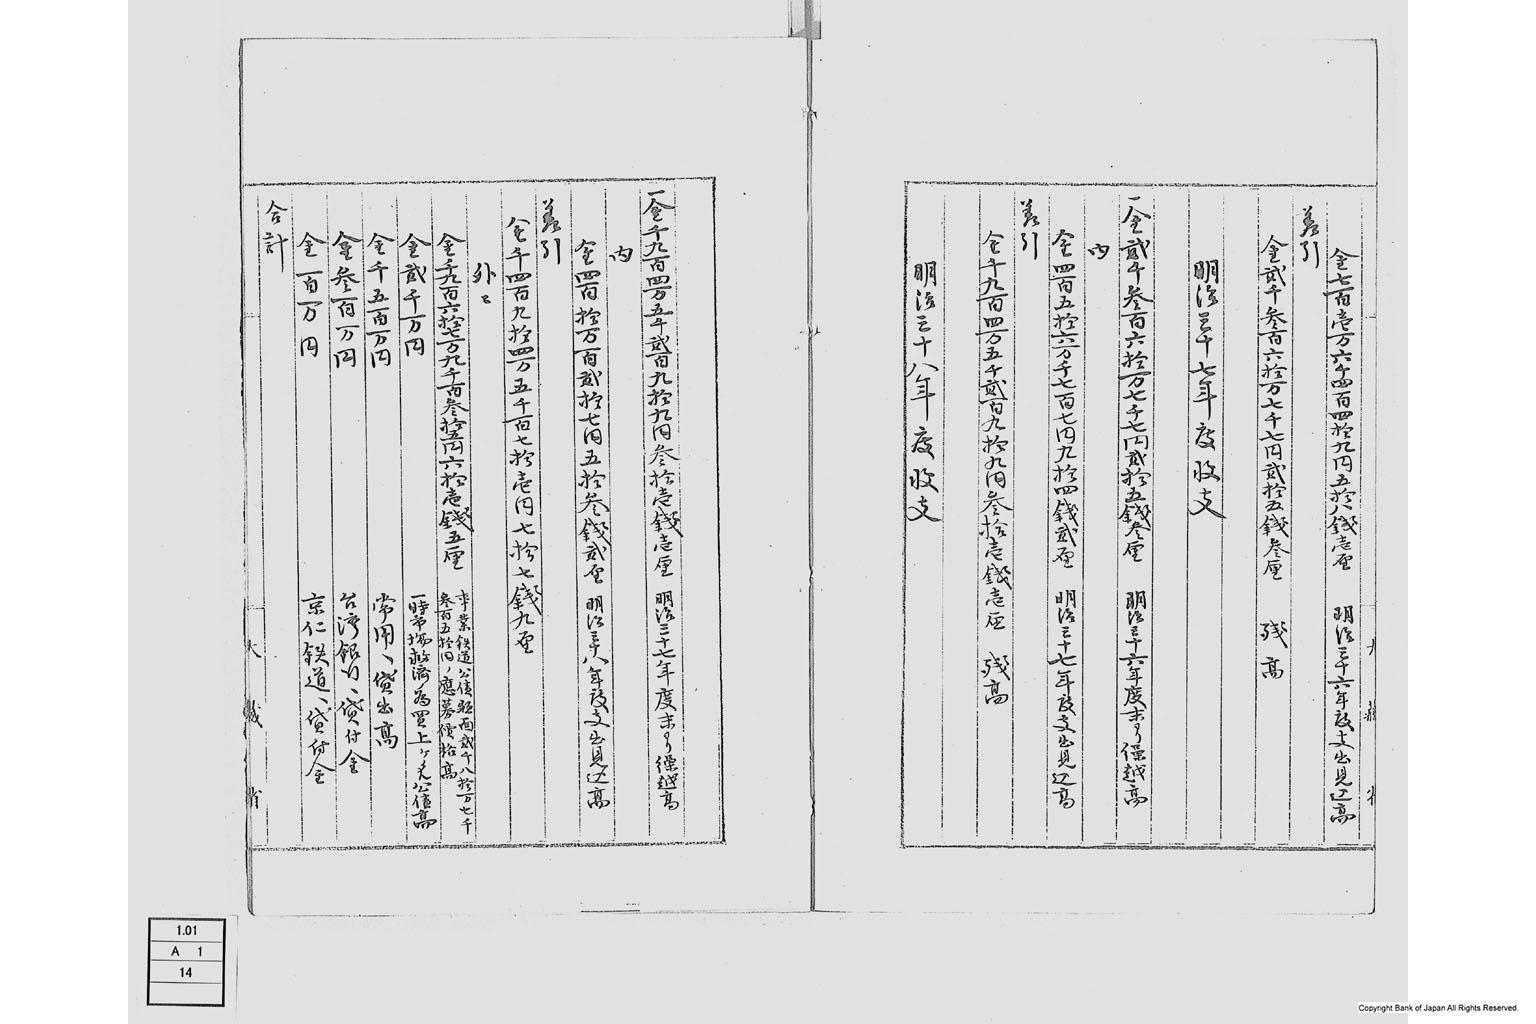 金七百壱万六千四百四拾九円五拾八銭壱厘　明治三十六年度支出見込高
差引
金貳千参百六拾万七千七円貳拾五銭参厘　残高
明治三十七年度収支
一金貳千参百六拾万七千七円貳拾五銭参厘　明治三十六年度末ヨリ繰越高
内
金四百五拾六万千七百七円九拾四銭貳厘　明治三十七年度支出見込高
差引
金千九百四万五千貳百九拾九円参拾壱銭壱厘　残高
明治三十八年度収支
大蔵省
一金千九百四万五千貳百九拾九円参拾壱銭壱厘　明治三十七年度末ヨリ繰越高
内
金四百拾万百貳拾七円五拾参銭貳厘　明治三十八年度支出見込高
差引
金千四百九拾四万五千百七拾壱円七拾七銭九厘
外ニ
金千九百六拾七万九千百参拾五円六拾壱銭五厘　事業鉄道公債額面貳千八拾万七千
参百五拾円ノ應募價格高
金貳千万円　一時市場救済為買上ケタル公債高
金千五百万円　常用ヘ貸出高
金参百万円　台湾銀行ヘ貸付金
金一百万円　京仁鉄道ヘ貸付金
合計
大蔵省
1.01
A 1
14
Copyright Bank of Japan All Rights Reserved.